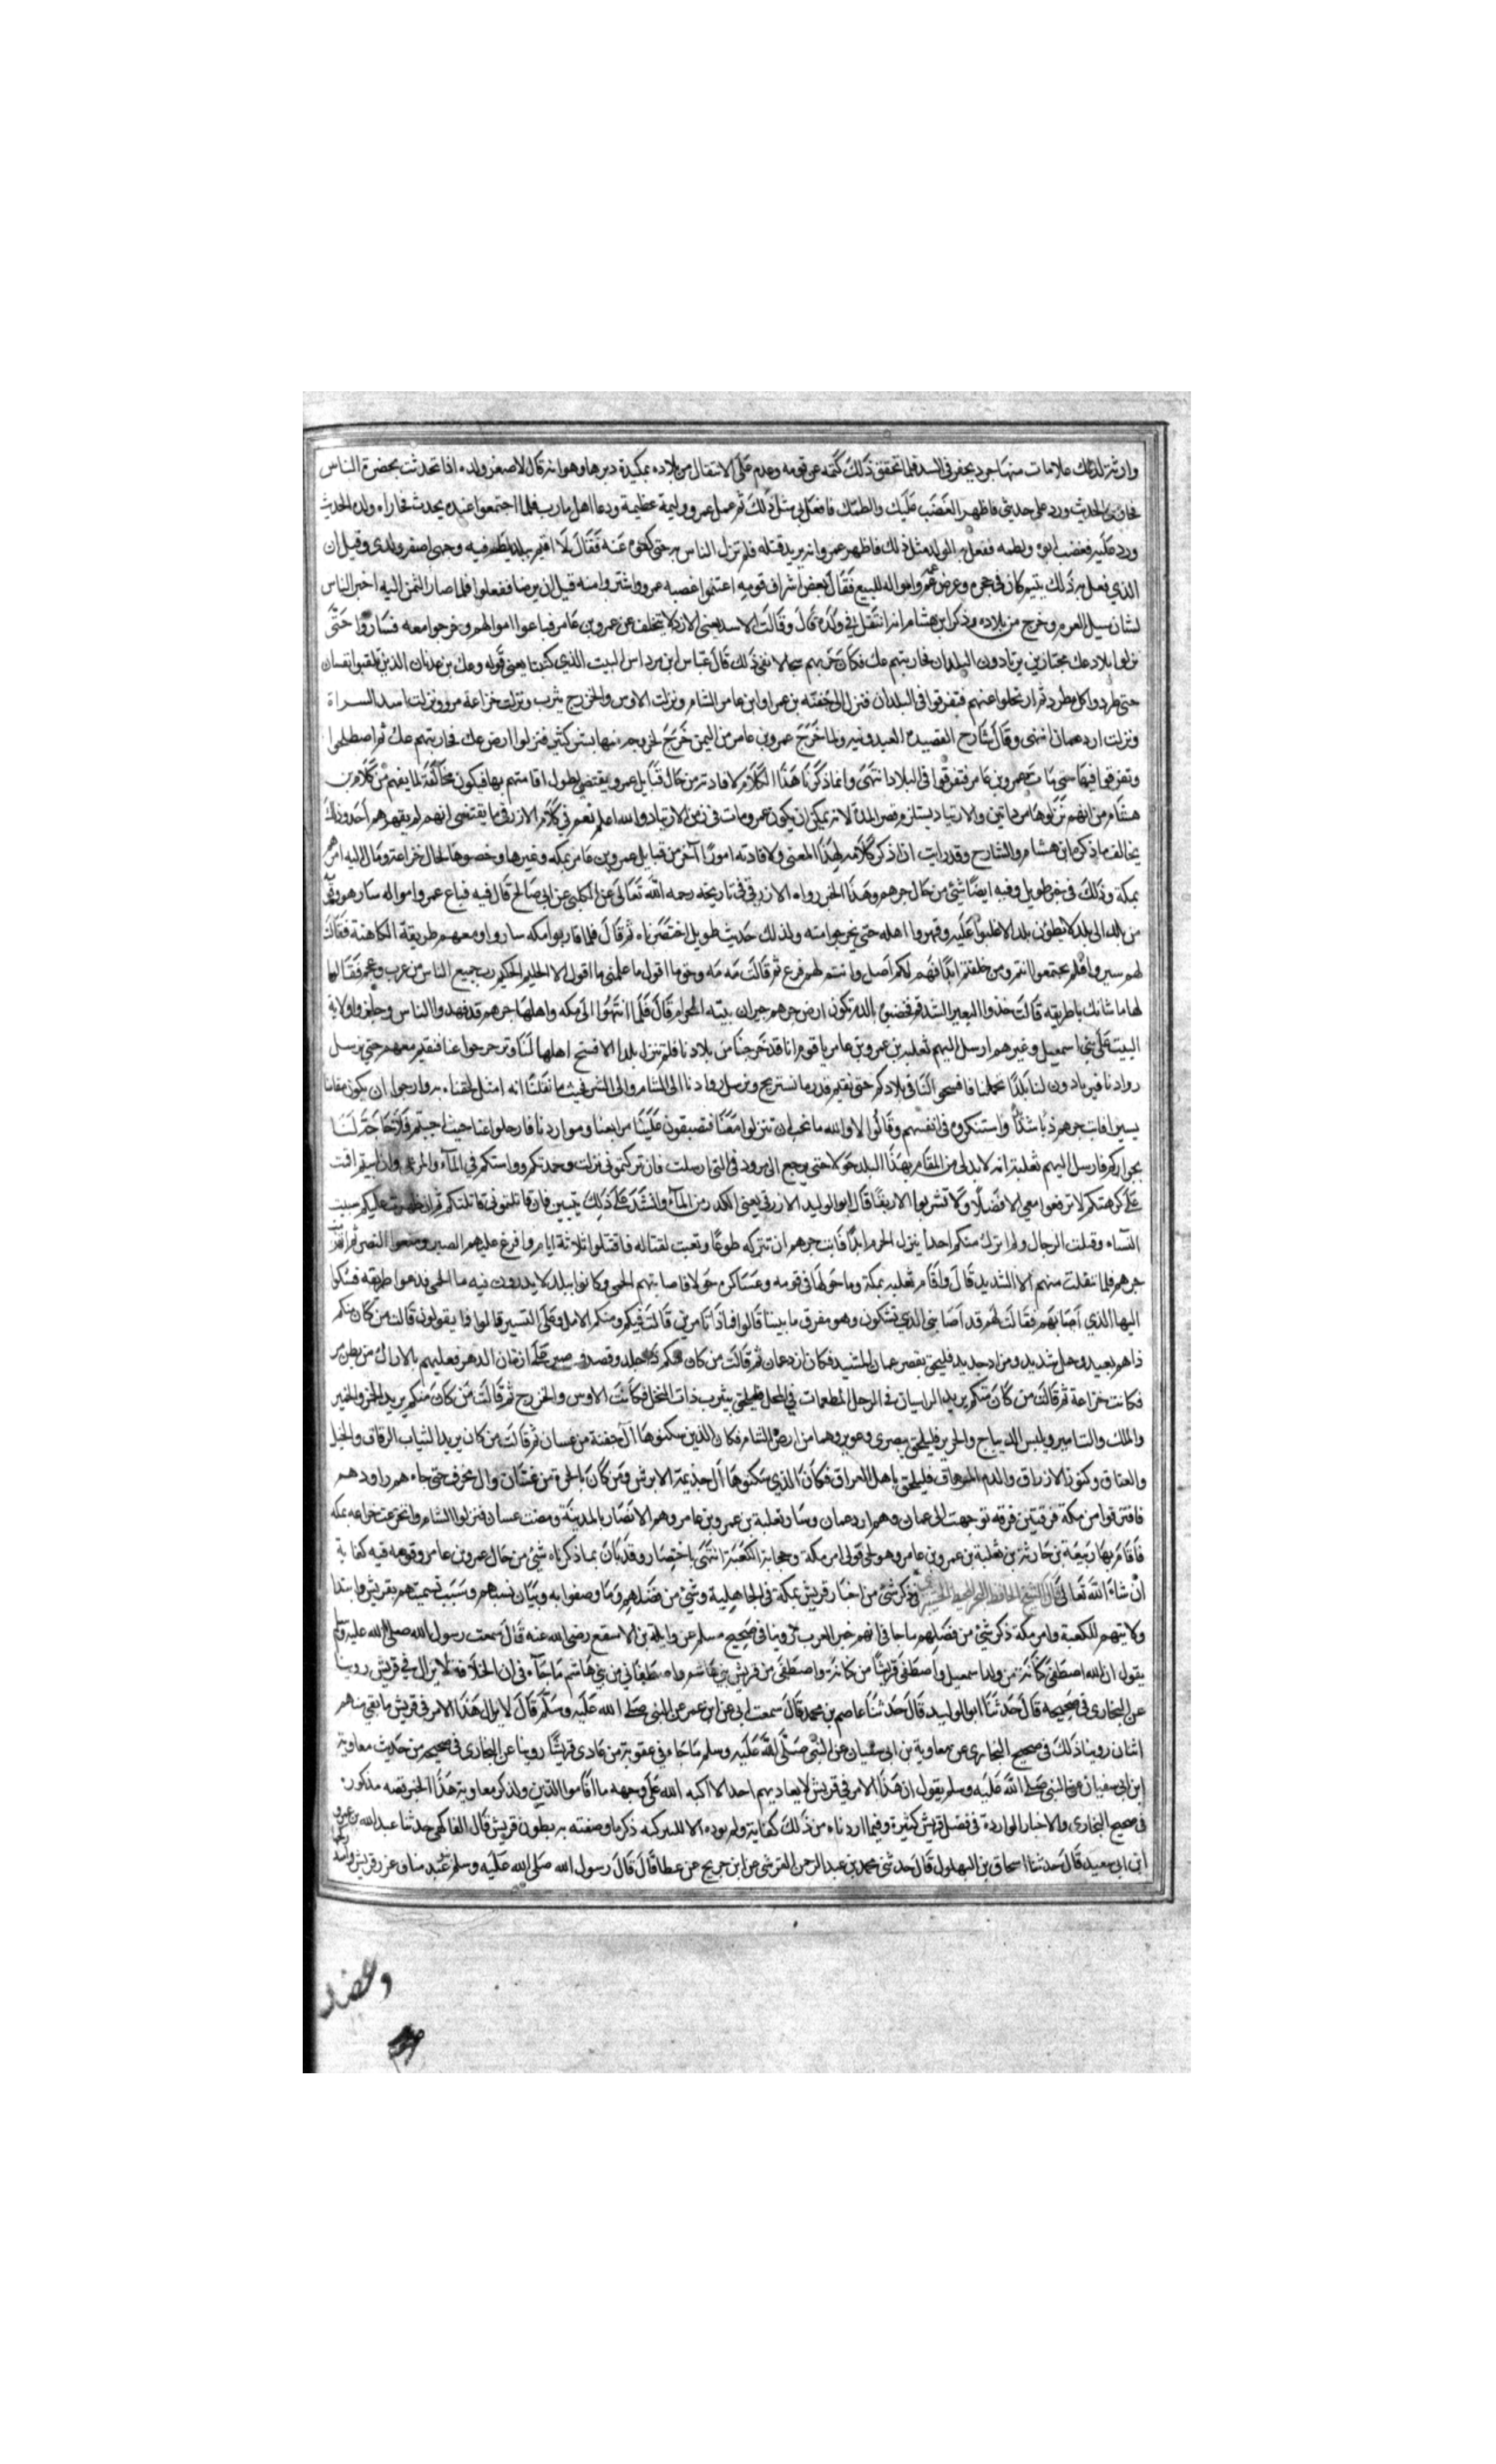 وان ثم لذلك علامات منها جرد يحفر في السد فلما تحقق ذلك كتمه عن قومه وعزم على الانتقال من بلاده بمكيدة دبرها وهو انه قال لاصغر ولده اذا تحدثت بحضرة الناس
فجاوبني الحديث ورد على حديثي فاظهر الغضب عليك والطمك فافعل بي مثل ذلك ثم عمل عمرو وليمة عظيمة ودعا اهل مارب فلما اجتمعوا عنده يحدث فجاراه ولده الحديث
ورد عليه فغضب ابوه ولطمه ففعل به الولد مثل ذلك فاظهر عمرو انه يريد قتله فلم تزل الناس به حتى كفوه عنه فقال لا اقيم ببلد يلطم فيه وجهي اصغر ولدي وقيل ان
الذي فعل به ذلك يتيم كان في حجره وعرض عمرو امواله للبيع فقال بعض اشراف قومه اغتنموا غضبة عمرو واشتروا منه قبل ان يرضا ففعلوا فلما صار الثمن اليه اخبر الناس
بشان سيل العرم وخرج من بلاده وذكر ابن هشام انه انتقل في ولده قال وقالت الاسد يعني الازد لا يتخلف عن عمرو بن عامر فباعوا اموالهم وخرجوا معه فساروا حتى
نزلوا بلاد عك مجتازين يرتادون البلدان فحاربتهم عك فكان حربهم سجالا ففي ذلك قال عباس ابن مرداس البيت الذي كتبنا يعني قوله وعك بن عدنان الذين تلقبوا بغسان
حتى طردوا كل مطرد ثم ارتحلوا عنهم فتفرقوا في البلدان فنزل ال جفنه بن عمرو ابن عامر الشام ونزلت الاوس والخزرج يثرب ونزلت خزاعة مرو ونزلت اسد السراة
ونزلت ازد عمان عمان انتهى وقال شارح القصيدة العبدونيه ولما خرج عمرو بن عامر من اليمن خرج لخروجه منها بشر كثير فنزلوا ارض عك فحاربتهم عك ثم اصطلحوا
وتفرقوا فيها حتى مات عمرو بن عامر فتفرقوا في البلاد انتهى وانما ذكرنا هذا الكلام لافادته من حال قبايل عمرو يقتضي لطول اقامتهم بها فيكون مخالفة لما يفهم من كلام بن
هشام من انهم نزلوها مرتادين والارتياد يستلزم قصر المدة لانه يمكن ان يكون عمرو مات في زمن الارتياد والله اعلم نعم في كلام الازرقي ما يقتضي انهم لم يقهرهم احد وذلك
يخالف ما ذكره ابن هشام والشارح وقد رايت ان اذكر كلامه لهذا المعنى ولافادته امورًا آخر من قبايل عمرو بن عامر بمكه وغيرها وخصوصا لحال خزاعة وما ال اليه امرهم
بمكة وذلك في خبر طويل وفيه ايضًا شيء من حال جرهم وهذا الخبر رواه الازرقي في تاريخه رحمه الله تعالى عن الكلبي عن ابي صالح قال فيه فباع عمرو امواله سار هو وقومه
من بلد الى بلد لا يطؤن بلد الا غلبوا عليه وقهروا اهله حتى يخرجوا منه ولذلك حديث طويل اختصرناه ثم قال فلما قاربوا مكه ساروا ومعهم طريفة الكاهنة فقالت
لهم سيروا فلم تجتمعوا انتم ومن خلفتم ابدًا فهم لكم اصل وانتم لهم فرع ثم قالت مه مه وحق ما اقول ما علمني ما اقول الا الحليم الحكيم رب جميع الناس من عرب وعجم فقالوا
لها ما شانك يا طريفه قالت خذوا البعير الشدقم فخضبوه بالدم تكون ارض جرهم جيران بيته الحرام قال فلما انتهوا الى مكه واهلها جرهم قد قهروا الناس وحازوا ولاية
البيت على بني اسمعيل وغيرهم ارسل اليهم ثعلبه بن عمرو بن عامر يا قوم انا قد خرجنا من بلادنا فلم ننزل بلدا الا فسح اهلها لنا وتزحزحوا عنا فنقيم معهم حتى نرسل
روادنا فيرتادون لنا بلدًا تحملنا فافسحوا لنا في بلادكم حتى نقيم قدر ما نستريح ونرسل روادنا الى الشام والى الشرق فحيث ما نقلنا انه امثل لحقنا به وارجوا ان يكون مقامنا
يسيرا فابت جرهم ذلك واستنكروه في انفسهم وقالوا لا والله ما نحب ان تنزلوا معنا فتضيقون علينا مرابعنا ومواردنا فارحلوا عنا حيث احببتم فلا حاجة لنا
بجواركم فارسل اليهم ثعلبة انه لا بد لي من المقام بهذا البلد حولا حتى يرجع الي رسلي التي ارسلت فان تركتموني نزلت وحمدتكم وواسيتكم في الماء والمرعى وان ابيتم اقمت
على كرهتكم لا ترتعوا معي الا فضلا ولا تشربوا الا رنقًا قال ابو الوليد الازرقي يعني الكدر من الماء وانشد على ذلك بيتين فان قاتلتموني قاتلتكم ثم ان ظهرت عليكم سبيت
النساء وقتلت الرجال ولم اترك منكم احدا ينزل الحرم ابدًا فابت جرهم ان تتركه طوعًا وتعبت لقتاله فاقتتلوا ثلاثة ايام وافرغ عليهم الصبر ومنعوا النصر ثم انهزمت
جرهم فلما تنفلت منهم الا الشديد قال واقام ثعلبه بمكة وما حولها في قومه وعساكره حولا فاصابتهم الحمى وكانوا ببلد لا يدرون فيه ما الحمى فدعوا طريفه فشكوا
اليها الذي اصابهم فقالت لهم قد اصابني الذي تشكون وهو مفرق ما بيننا قالوا فماذا تامرين قالت فيكم ومنكم الامل وعلى التسير قالوا فما تقولون قالت من كان منكم
ذا هم بعيد وحمل شديد ومزاد جديد فليلحق بقصر عمان المشيد فكان ازد عمان ثم قالت من كان منكم ذا جلد وقصد وصبر على ازمان الدهر فعليهم بالاراك من بطن مر
فكانت خزاعة ثم قالت من كان منكم يريد الراسيات في الوحل المطعمات في المحل فليلحق بيثرب ذات النخل فكانت الاوس والخزرج ثم قالت من كان منكم يريد الخمر والخمير
والملك والتامير ويلبس الديباج والحرير فليلحق ببصرى وعوير وهما من ارض الشام فكان الذين سكنوها آل جفنة من غسان ثم قالت من كان يريد الثياب الرقاق والخيل
والعتاق وكنوز الارزاق والدم المهراق فليلحق باهل العراق فكان الذي سكنوها آل جذيمة الابرش ومن كان بالحيرة من غسان وال محرق حتى جاءهم روادهم
فافترقوا من مكة فرقتين فرقه توجهت الى عمان وهم ازد عمان وسار ثعلبة بن عمرو بن عامر وهم الانصار بالمدينة ومضت غسان فنزلوا الشام وانخزعت خزاعه بمكه
فاقام بها ربيعة بن حارثة بن ثعلبة بن عمرو بن عامر وهو لحي فولي امر مكة وحجابة الكعبة انتهى باختصار وقد بان بما ذكرناه شيء من حال عمرو بن عامر وقومه فيه كفاية
ان شاء الله تعالى قال الشيخ الحافظ في ذكر شيء من اخبار قريش بمكة في الجاهلية وشيء من فضلهم وما وصفوا به وبيان نسبهم وسبب تسميتهم بقريش وابتدا
ولايتهم للكعبة وامر مكة ذكر شيء من فضلهم ما جا في انهم خير العرب روينا في صحيح مسلم عن واثلة بن الاسقع رضي الله عنه قال سمعت رسول الله صلى الله عليه وسلم
يقول ان الله اصطفى كنانة من ولد اسمعيل واصطفى قريشًا من كنانة واصطفى من قريش بني هاشم واصطفاني من بني هاشم ما جاء في ان الخلافة لا يزال في قريش روينا
عن البخاري في صحيحه قال حدثنا ابو الوليد قال حدثنا عاصم بن محمد قال سمعت ابي عن ابن عمر عن النبي صلى الله عليه وسلم قال لا يزال هذا الامر في قريش ما بقي منهم
اثنان روينا ذلك في صحيح البخاري عن معاوية بن ابي سفيان عن النبي صلى الله عليه وسلم ما جاء في عقوبة من عادى قريشًا روينا عن البخاري في صحيحه من حديث معاوية
ابن ابي سفيان عن النبي صلى الله عليه وسلم يقول ان هذا الامر في قريش لا يعاديهم احد الا اكبه الله على وجهه ما اقاموا الدين ولذكر معاوية هذا الخبر قصه مذكورة
في صحيح البخاري والاخبار الواردة في فضل قريش كثيرة وفيما اوردناه من ذلك كفاية ذكر ما وصفته به بطون قريش قال الفاكهي حدثنا عبد الله بن عمرو
ابن ابي سعيد قال حدثنا اسحاق بن البهلول قال حدثني محمد بن عبد الرحمن القرشي عن ابن جريج عن عطا قال قال رسول الله صلى الله عليه وسلم عبد مناف عز قريش واسد
وعضد